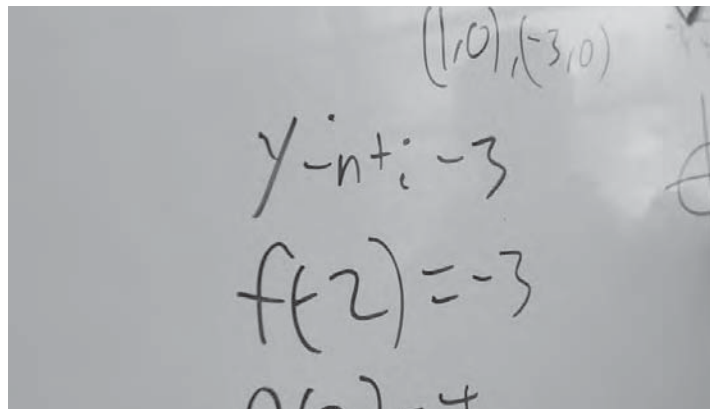 (1,0),(-3,0)
y-int: -3
f(-2)=-3